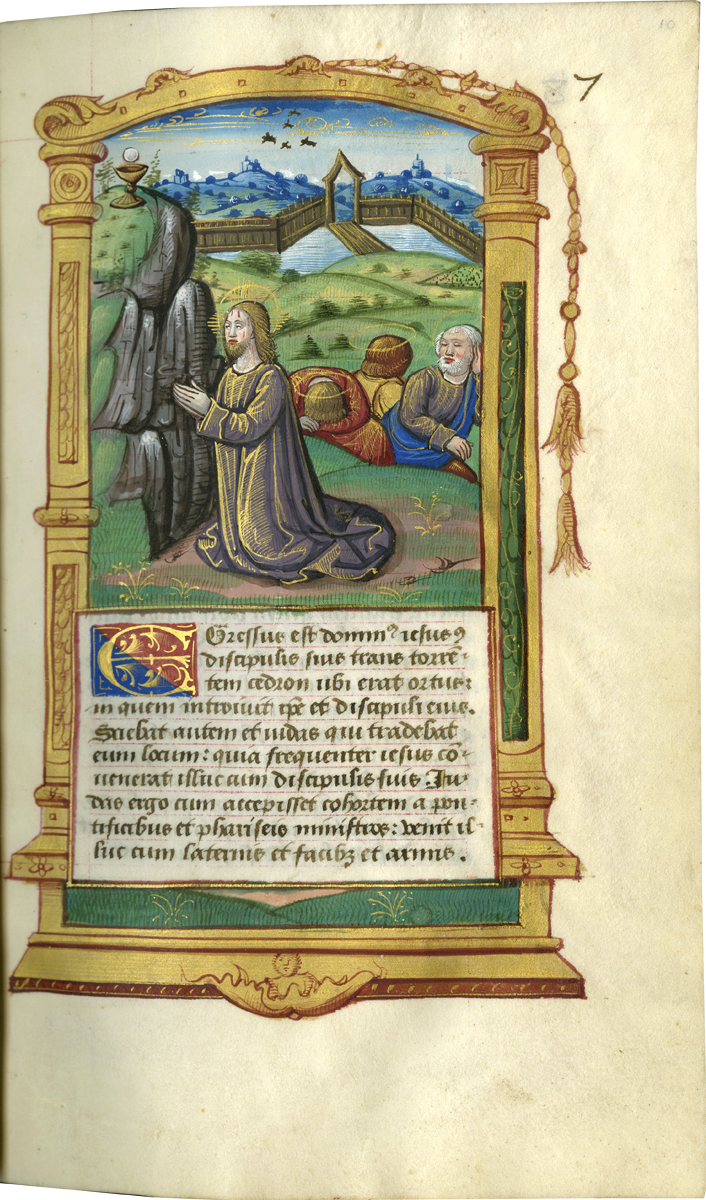 10
7
EGressus est dominꝰ iesus ꝯ
discipulis suis trans torrē-
tem cedron ubi erat ortus:
in quem introiuit ip̄e et discipuli eius.
Sciebat autem et iudas qui tradebat
eum locum: quia frequenter iesus cō-
uenerat illuc cum discipulis suis. Iu-
das ergo cum accepisset cohortem a pon-
tificibus et phariseis ministros: venit il-
luc cum laternis et facibꝫ et armis.